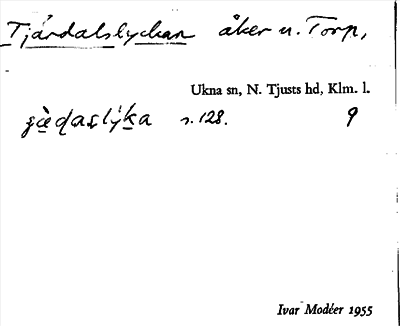 Tjärdalslyckan åker u. Torp,
Ukna sn, N. Tjusts hd, Klm. l.
s. 128. 9
Ivar Modéer 1955